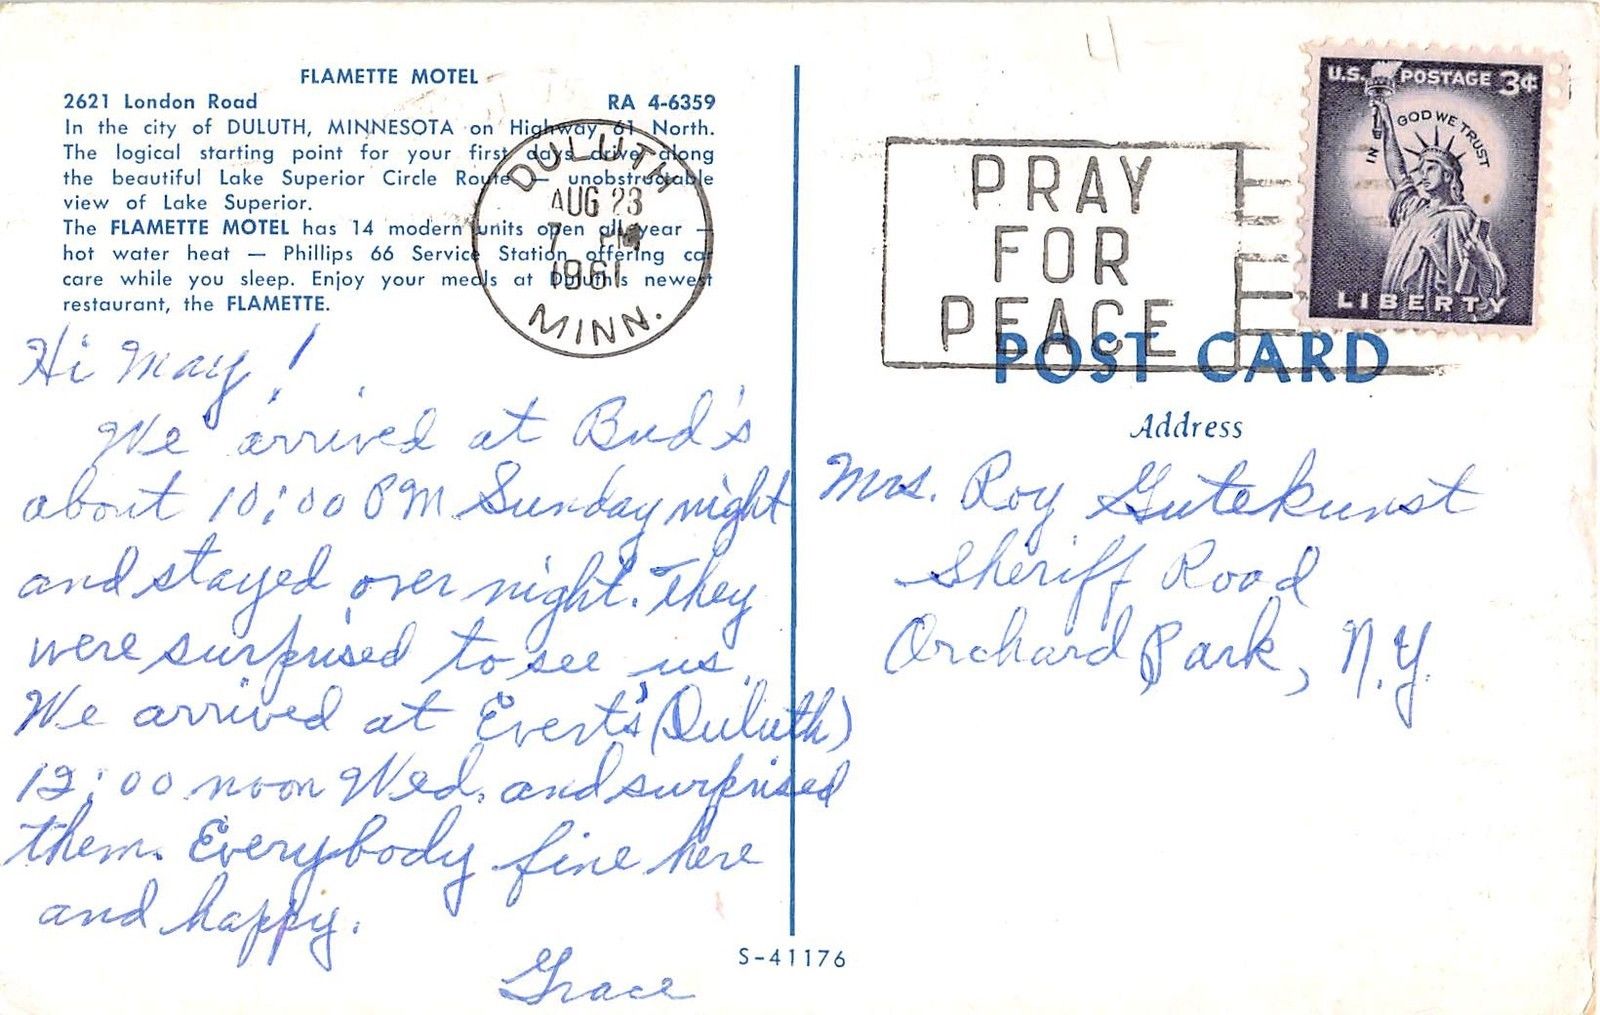 FLAMETTE MOTEL
2621 London Road RA 4-6359
In the city of DULUTH, MINNESOTA on Highway 61 North.
The logical starting point for your first days drive along
the beautiful Lake Superior Circle Route — unobstructable
view of Lake Superior.
The FLAMETTE MOTEL has 14 modern units open all year —
hot water heat — Phillips 66 Service Station offering car
care while you sleep. Enjoy your meals at Duluth's newest
restaurant, the FLAMETTE.
DULUTH
AUG 23
7 PM
1961
MINN.
Hi May!
We arrived at Bud's
about 10:00 PM Sunday night
and stayed over night. They
were surprised to see us.
We arrived at Evert's (Duluth)
12:00 noon Wed. and surprised
them. Everybody fine here
and happy.
Grace
S-41176
4
PRAY
FOR
PEACE
U.S. POSTAGE 3¢
IN GOD WE TRUST
LIBERTY
POST CARD
Address
Mrs. Roy Gutekunst
Sheriff Road
Orchard Park, N.Y.